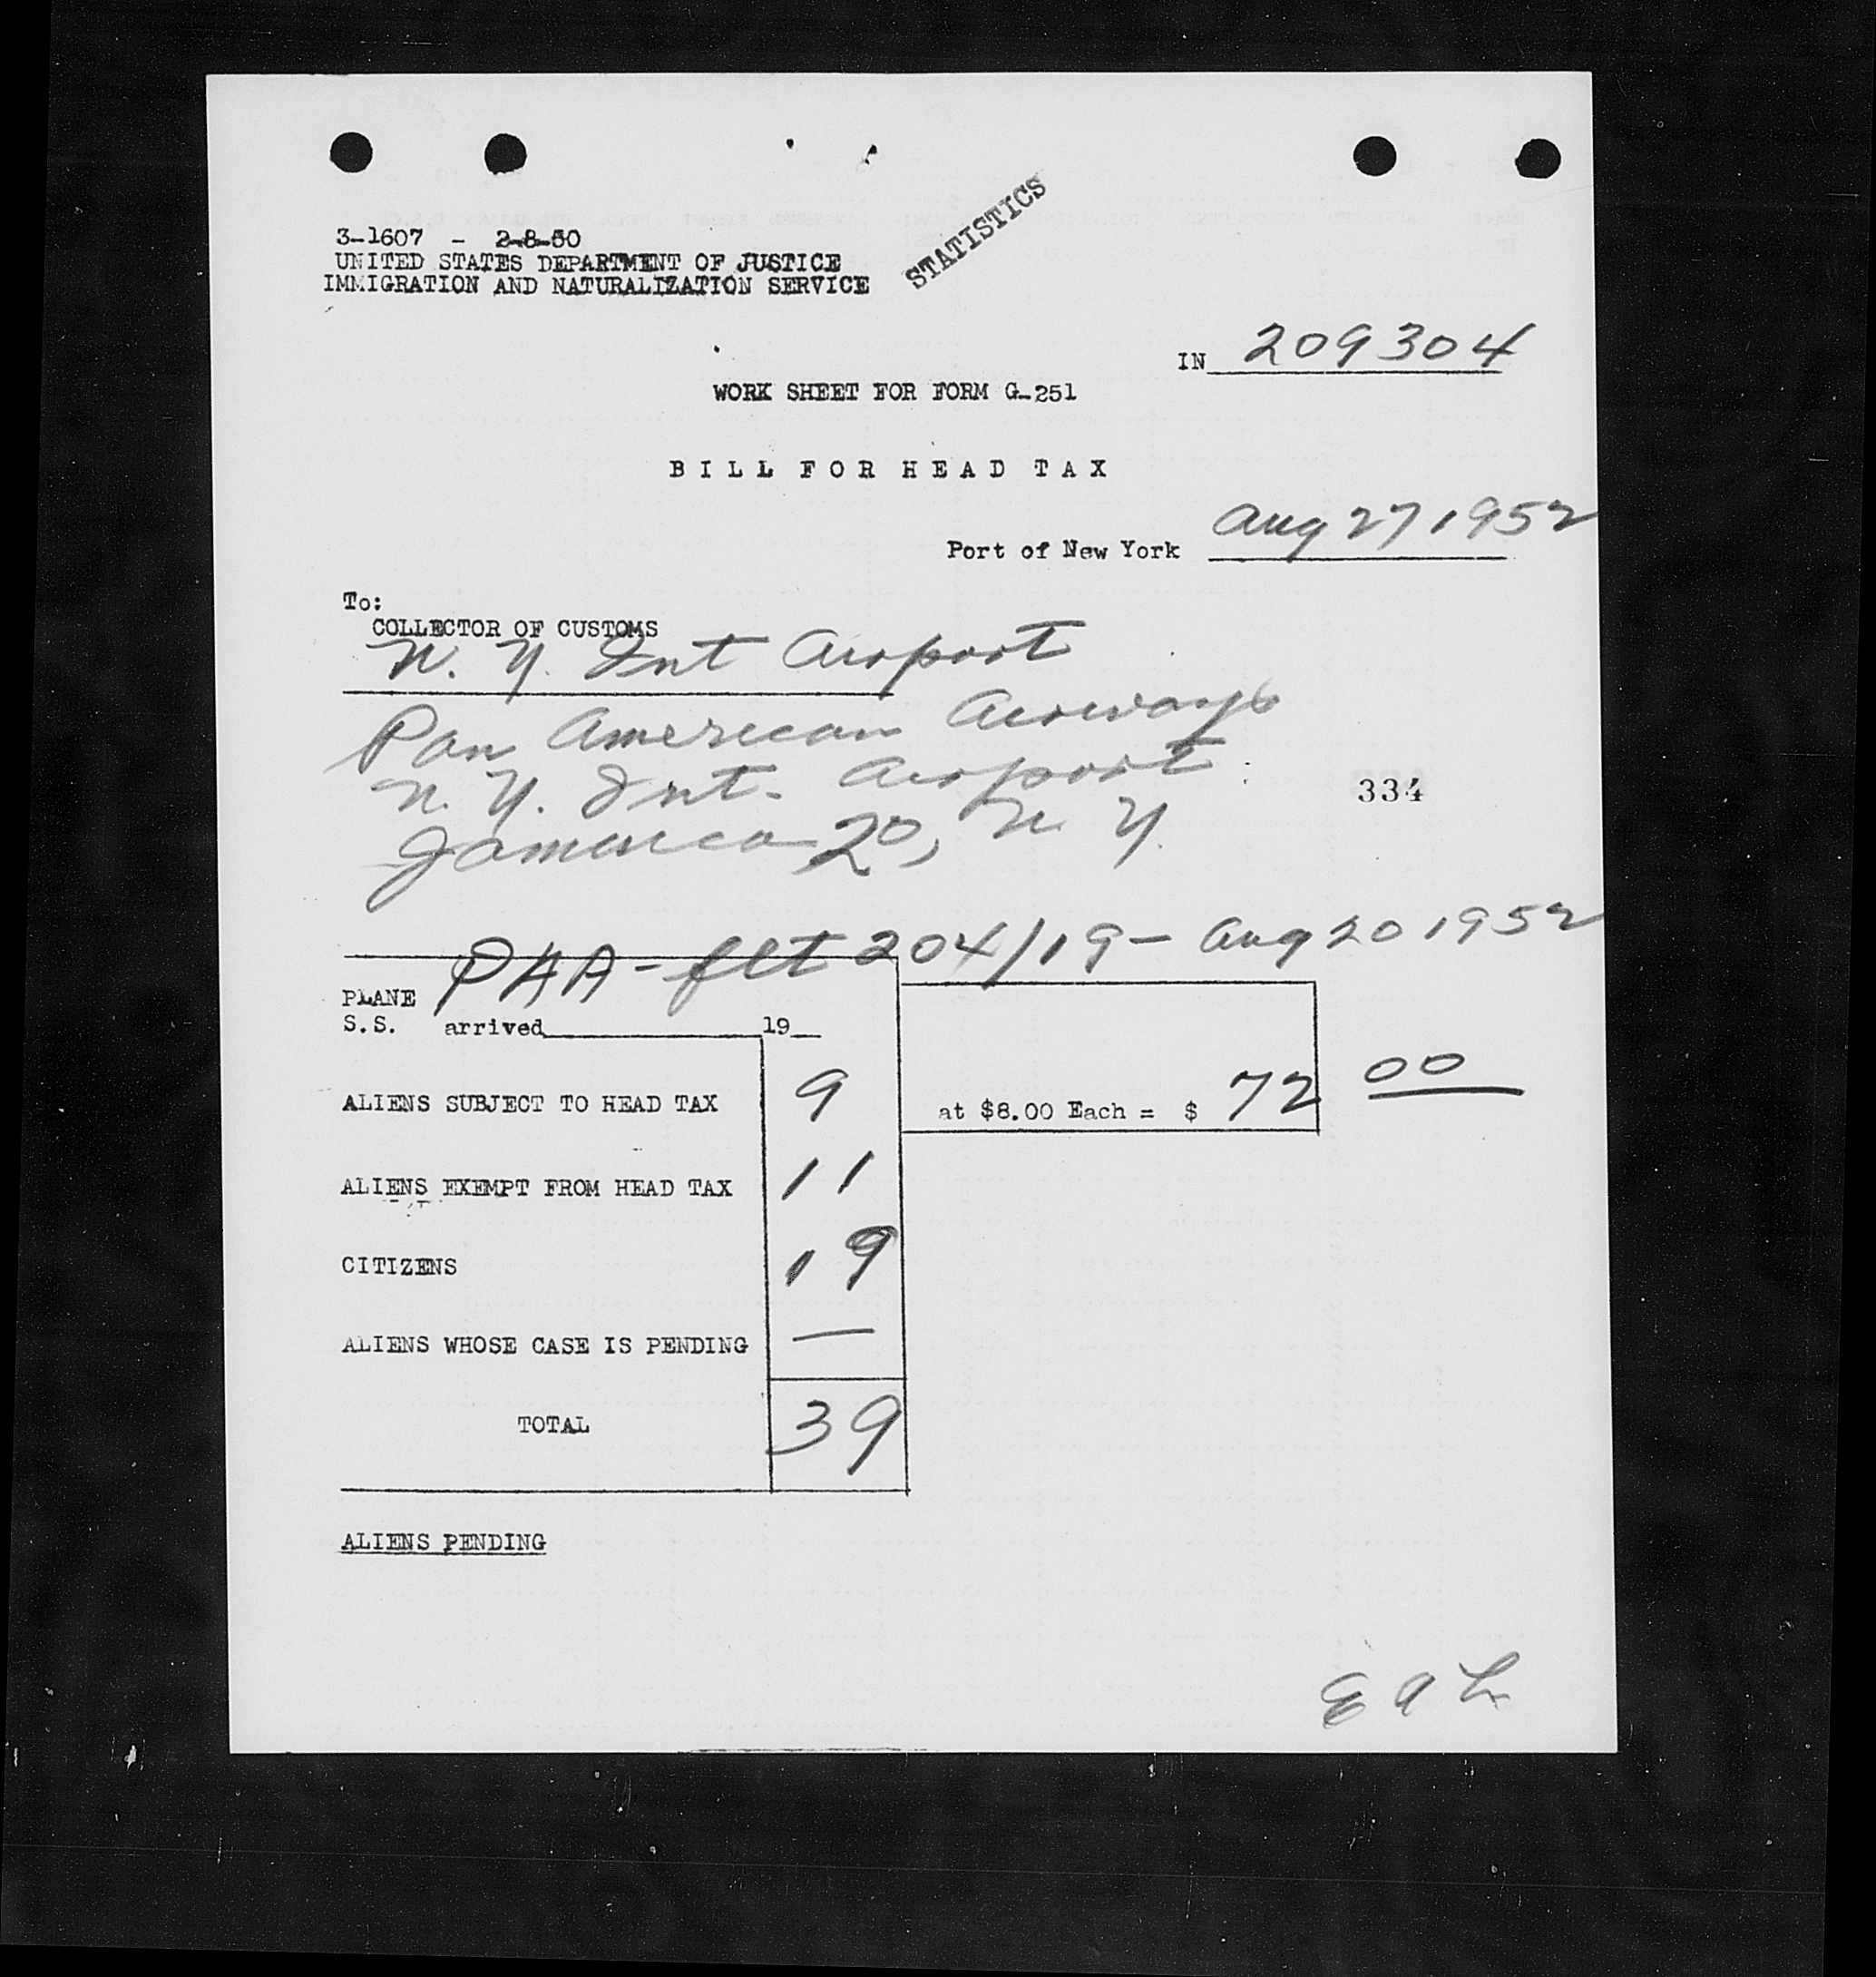 STATISTICS
3-1607 - 2-8-50
UNITED STATES DEPARTMENT OF JUSTICE
IMMIGRATION AND NATURALIZATION SERVICE
IN 209304
WORK SHEET FOR FORM G-251
BILL FOR HEAD TAX
Port of New York Aug 27 1952
To:
COLLECTOR OF CUSTOMS
N. Y. Int Airport
Pan American Airways
N. Y. Int. Airport
334
Jamaica 20, N. Y.
PAA - flt 204/19 - Aug 20 1952
PLANE
S.S. arrived 19
ALIENS SUBJECT TO HEAD TAX 9 at $8.00 Each = $ 72 00
ALIENS EXEMPT FROM HEAD TAX 11
CITIZENS 19
ALIENS WHOSE CASE IS PENDING —
TOTAL 39
ALIENS PENDING